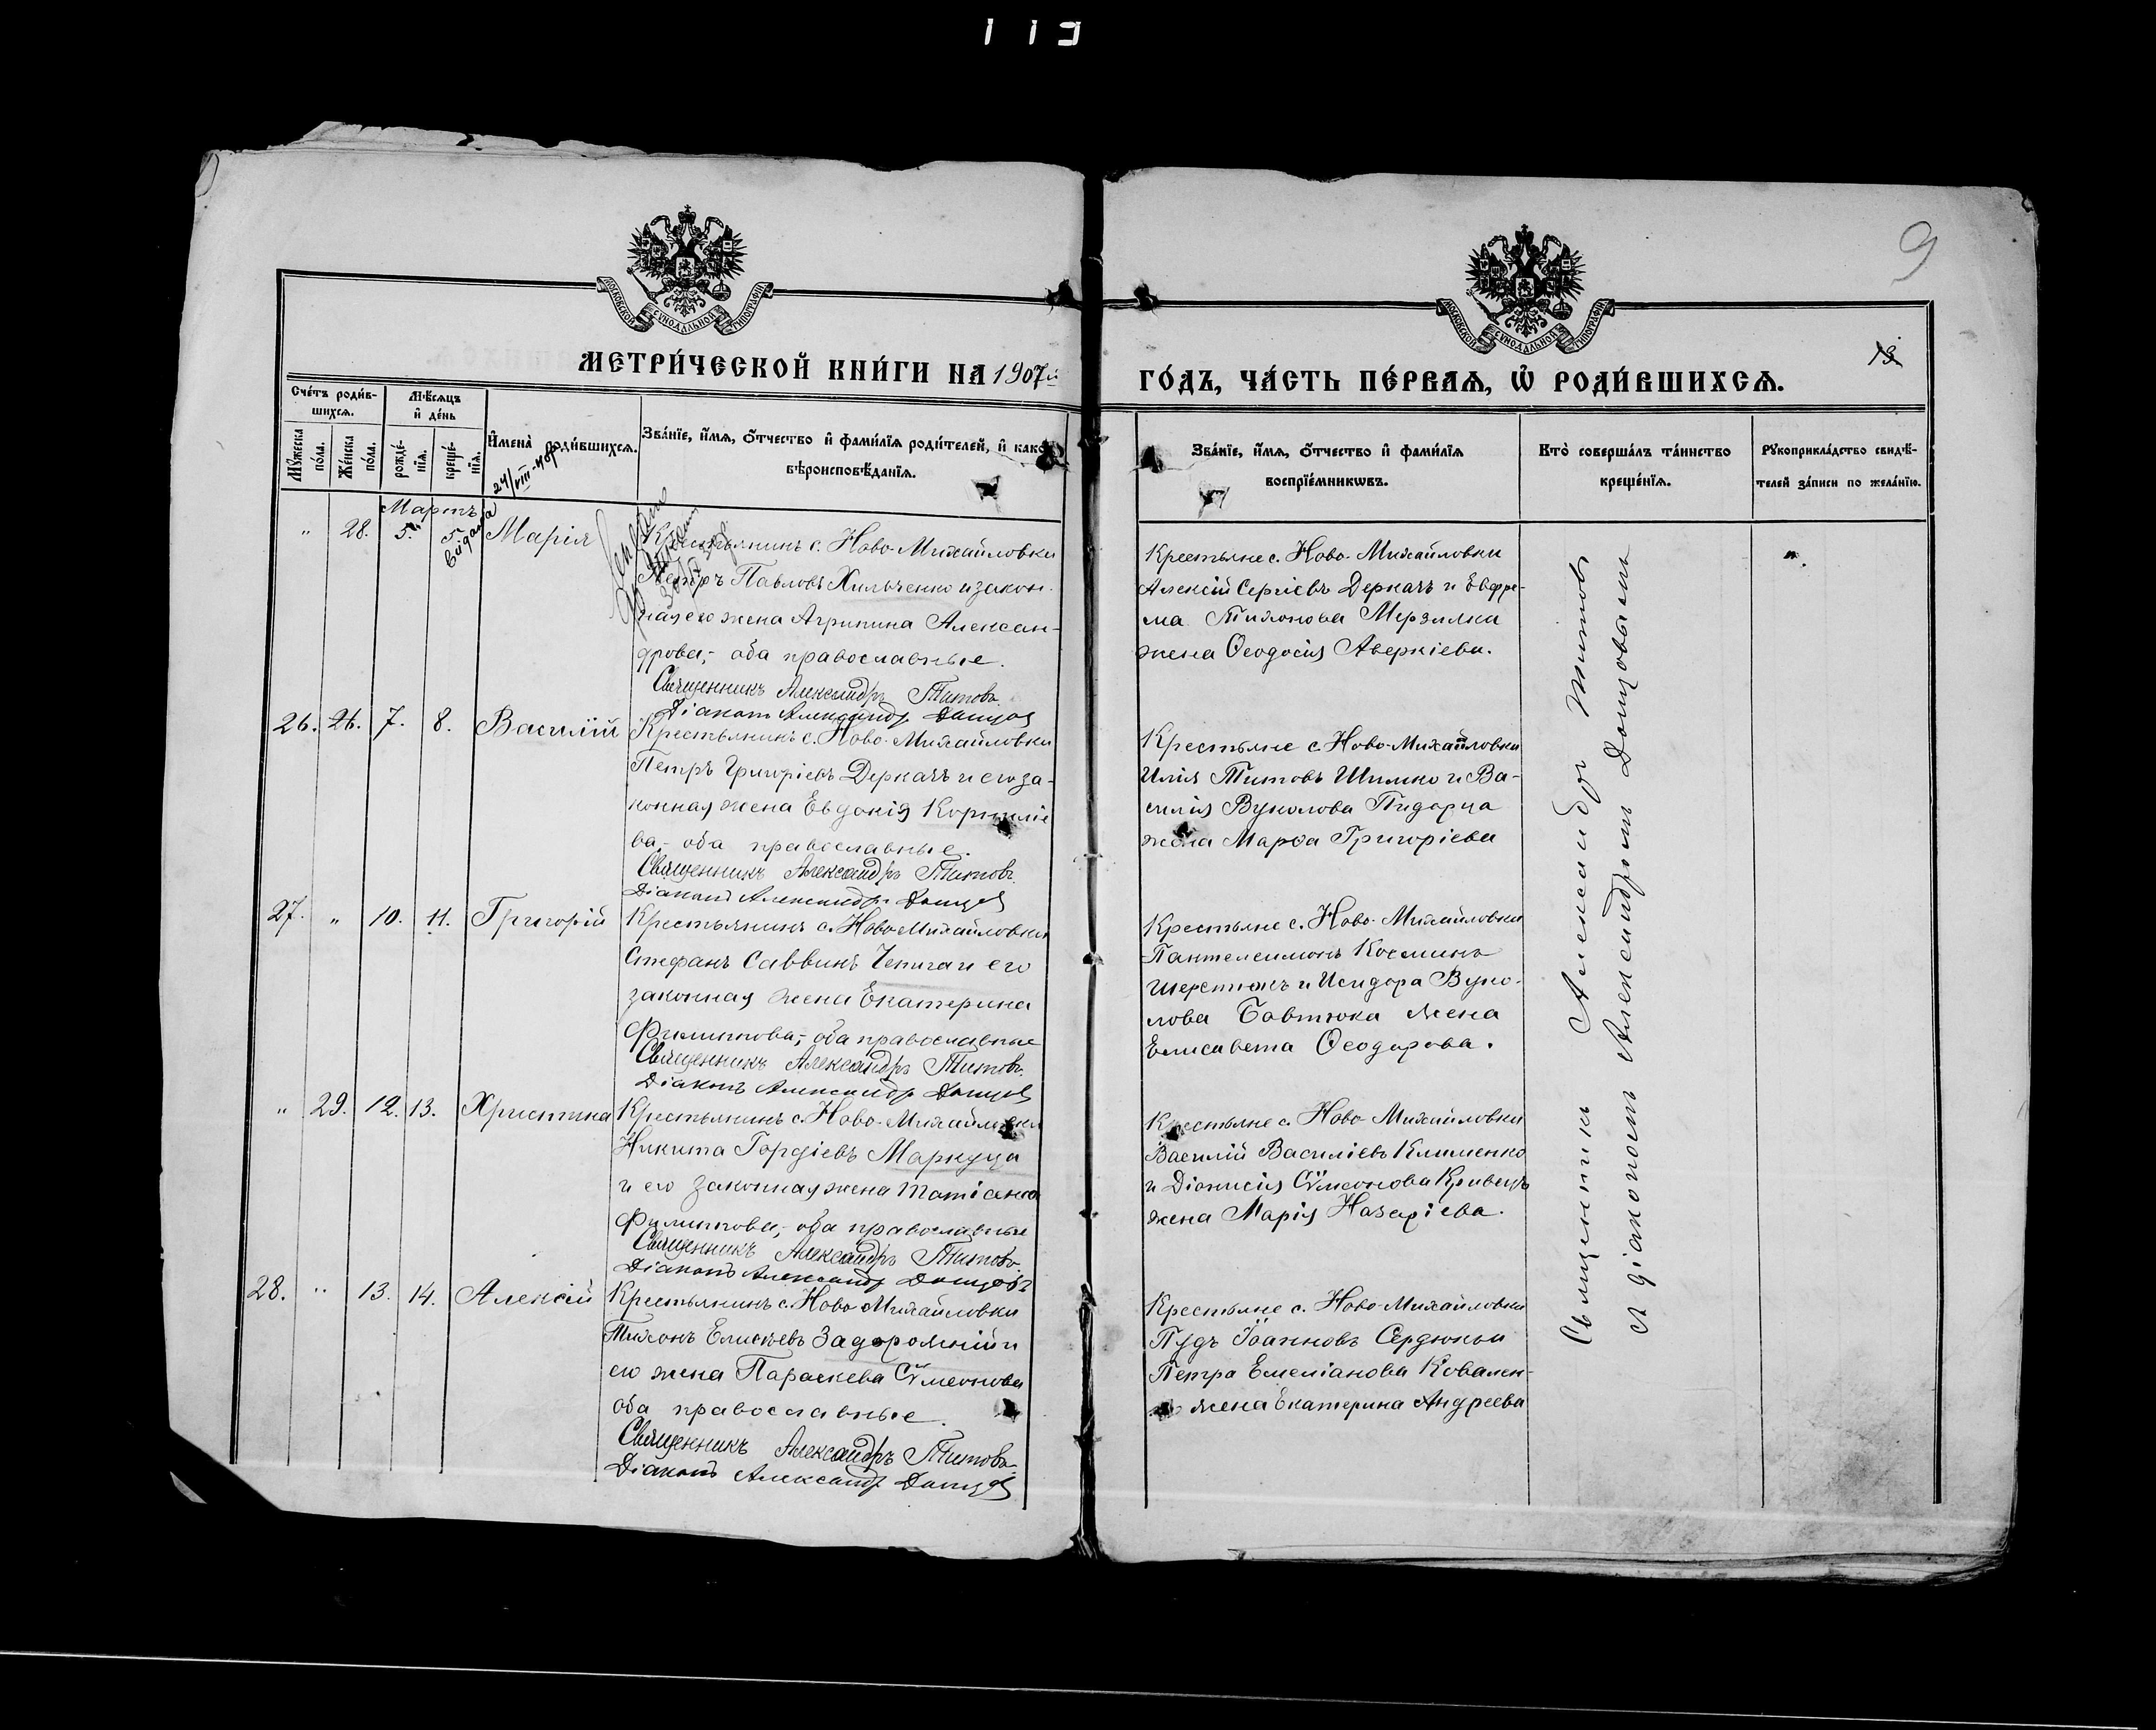 113
9
МОСКОВСКОЙ СУНОДАЛЬНОЙ ТИПОГРАФІИ
МОСКОВСКОЙ СУНОДАЛЬНОЙ ТИПОГРАФІИ
13
МЕТРИ́ЧЕСКОЙ КНИ́ГИ НА 1907й
ГО́ДЪ, ЧА́СТЬ ПЕ́РВАѦ, Ѿ РОДИ́ВШИХСѦ.
Сче́тъ роди́в-
шихсѧ.
Мꙋ́жеска по́ла.
Же́нска по́ла.
Мѣ́сѧцъ
и҆ де́нь
рожде́-
нїѧ.
креще́-
нїѧ.
И҆мена̀ роди́вшихсѧ.
Зва́нїе, и҆́мѧ, ѻ҆́тчество и҆ фами́лїѧ роди́телей, и҆ како́
вѣроисповѣ́данїѧ.
Зва́нїе, и҆́мѧ, ѻ҆́тчество и҆ фами́лїѧ
воспрїе́мникѡвъ.
Кто̀ соверша́лъ та́инство
креще́нїѧ.
Рꙋкоприкла́дство свидѣ́-
телей за́писи по жела́нїю.
24/VIII-40р
Видана
Мартъ
„ 28. 5. 5. Марія
Крестьянинъ с. Ново-Михайловки
Петръ Павловъ Хильченко и закон-
ная его жена Агрипина Алексан-
дрова,- оба православные.
Священникъ Александръ Титовъ.
Діаконъ Александръ Донцов
Крестьяне с. Ново-Михайловки
Алексій Сергіевъ Деркачъ и Евфре-
ма Тихонова Мерзлика
жена Ѳеодосія Аверкіева.
„
26. 26. 7. 8. Василій
Крестьянинъ с. Ново-Михайловки
Петръ Григоріевъ Деркачъ и его за-
конная жена Евдокія Корниліе
ва,- оба православные.
Священникъ Александръ Титовъ.
Діаконъ Александръ Донцов
Крестьяне с. Ново-Михайловки
Илія Титовъ Шилко и Ва-
силія Вуколова Пидорца
жена Марѳа Григоріева
27. „ 10. 11. Григорій
Крестьянинъ с. Ново-Михайловки
Стефанъ Саввинъ Чепига и его
законная жена Екатерина
Филиппова,- оба православные
Священникъ Александръ Титовъ.
Діаконъ Александръ Донцов
Крестьяне с. Ново-Михайловки
Пантелеимонъ Косминъ
Шерстюкъ и Исидора Вуко-
лова Бовтюка жена
Елисавета Ѳеодорова.
„ 29. 12. 13. Христина
Крестьянинъ с. Ново-Михайловки
Никита Гордіевъ Маркуца
и его законная жена Татіана
Филиппова,- оба православные
Священникъ Александръ Титовъ.
Діаконъ Александръ Донцовъ
Крестьяне с. Ново-Михайловки
Василій Василіевъ Клименко
и Діонисія Сѵмеонова Кривецъ
жена Марія Назаріева.
28. „ 13. 14. Алексій
Крестьянинъ с. Ново-Михайловки
Тихонъ Елисѣевъ Задорожній и
его жена Параскева Сѵмеонова
оба православные.
Священникъ Александръ Титовъ.
Діаконъ Александръ Донцов
Крестьяне с. Ново-Михайловки
Пудъ Іоанновъ Сердюкъ и
Петра Емеліанова Ковален-
жена Екатерина Андреева
Священникъ Александръ Титовъ
съ діакономъ Александромъ Донцовымъ